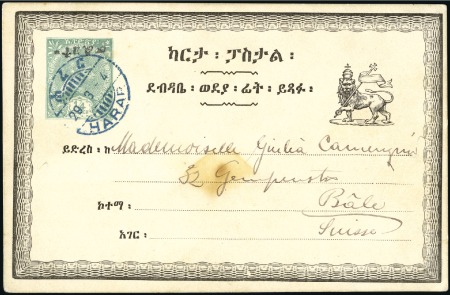 ካርታ ፡ ፖስታል ፡
ደብዳቤ ፡ ወደያ ፡ ፊት ፡ ይጻፉ ፡
HARAR
ይድረስ ፡ ከ Mademoiselle Giulia Camenzind
32 Gempenstr
ከተማ ፡ Bâle
አገር ፡ Suisse